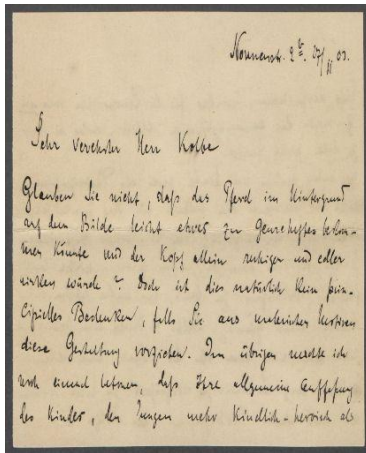 Nonnenstr. 2 b. 27/II 00.
Sehr verehrter Herr Kolbe
Glauben Sie nicht, daß das Pferd im Hintergrund
auf dem Bilde leicht etwas zu Genrehaftes bekom-
men könnte und der Kopf allein ruhigen und edler
wirken würde? Doch ist dies natürlich kein prin-
cipielles Bedenken, falls Sie aus malerischen Motiven
diese Gestaltung vorziehen. Im übrigen möchte ich
noch einmal betonen, daß Ihre allgemeine Auffassung
des Kindes, den Jungen mehr kindlich-heroisch als